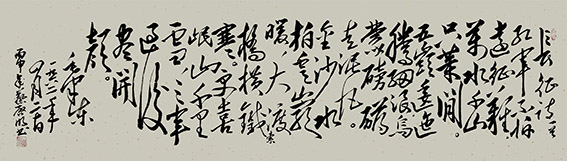 长征诗一
红军不怕
远征难
万水千山
只等闲
五岭逶迤
腾细浪乌
蒙磅礴
走泥丸
金沙水
拍云崖
暖大渡
桥横铁索
寒。更喜
岷山千里
雪三军
过后
尽开
颜。
毛泽东
一九六二年
四月二十日